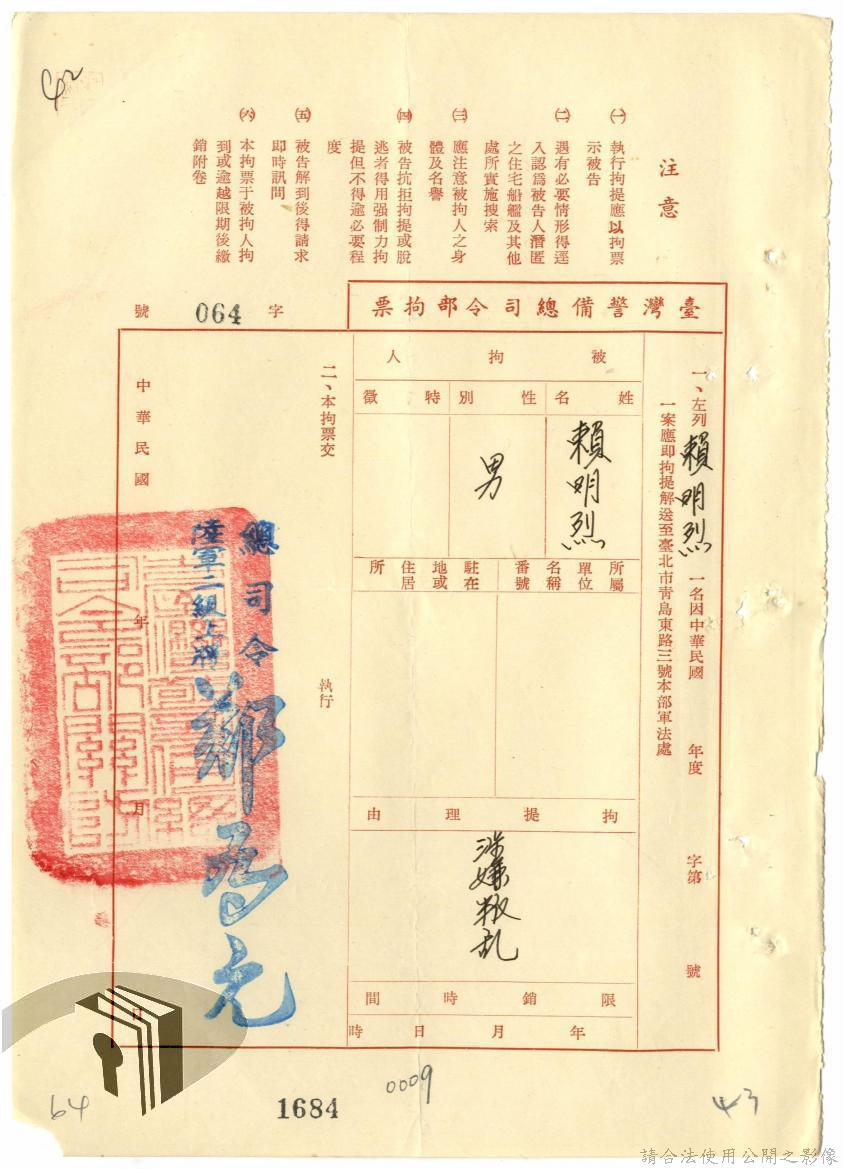 42
注意
㈠ 執行拘提應以拘票
示被告
㈡ 遇有必要情形得逕
入認爲被告人潛匿
之住宅船艦及其他
處所實施搜索
㈢ 應注意被拘人之身
體及名譽
㈣ 被告抗拒拘提或脫
逃者得用强制力拘
提但不得逾必要程
度
㈤ 被告解到後得請求
即時訊問
㈥ 本拘票于被拘人拘
到或逾越限期後繳
銷附卷
臺灣警備總司令部拘票
字 064 號
一、左列 賴明烈 一名因中華民國 年度 字第 號
一案應即拘提解送至臺北市靑島東路三號本部軍法處
被拘人
姓名
性別
特徵
賴明烈
男
所屬單位名稱番號
駐在地或住居所
拘提理由
涉嫌叛乱
限銷時間
年 月 日 時
二、本拘票交 執行
總司令
陸軍二級上將
中華民國 年 月 日
0009
1684
64
43
請合法使用公開之影像